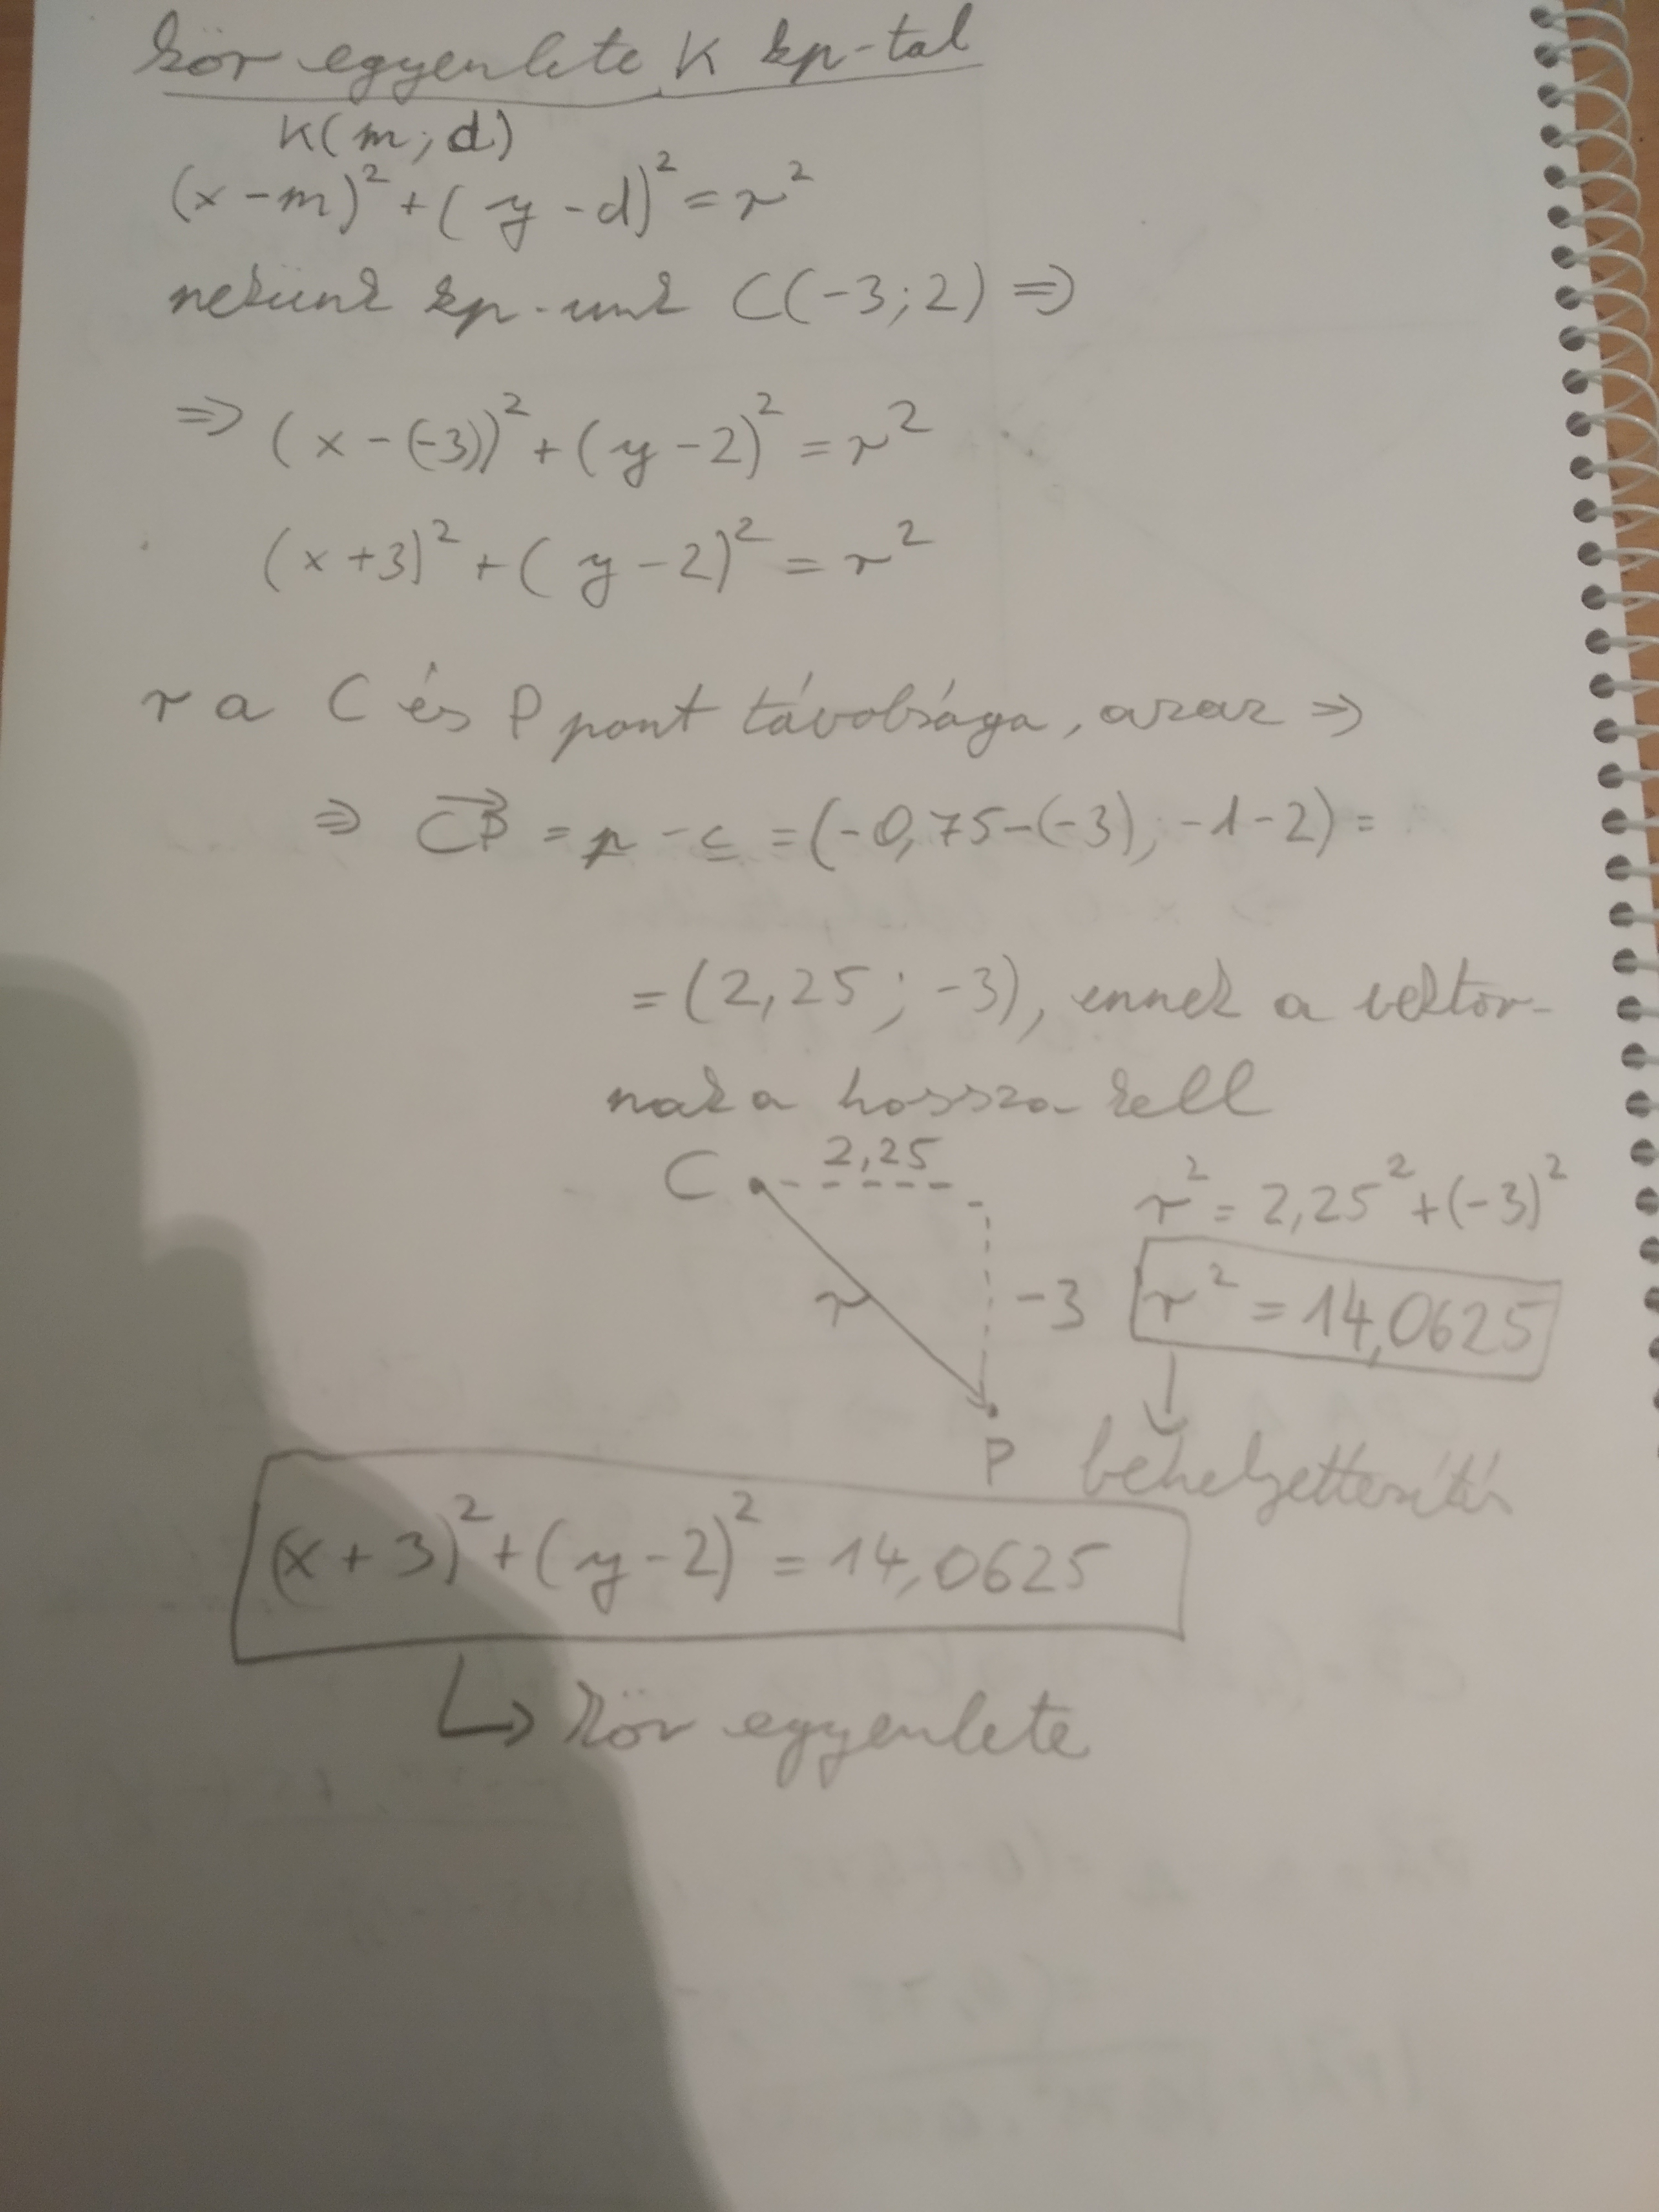 kör egyenlete K kp-tal
K(m; d)
(x-m)²+(y-d)²=r²
nekünk kp-unk C(-3;2) ⇒
⇒ (x-(-3))²+(y-2)²=r²
(x+3)²+(y-2)²=r²
r a C és P pont távolsága, azaz ⇒
⇒ CP = p - c = (-0,75-(-3); -1-2) =
= (2,25; -3), ennek a vektor-
nak a hossza kell
C 2,25
r²=2,25²+(-3)²
r -3 r²=14,0625
P behelyettesítés
(x+3)²+(y-2)²=14,0625
↳ kör egyenlete